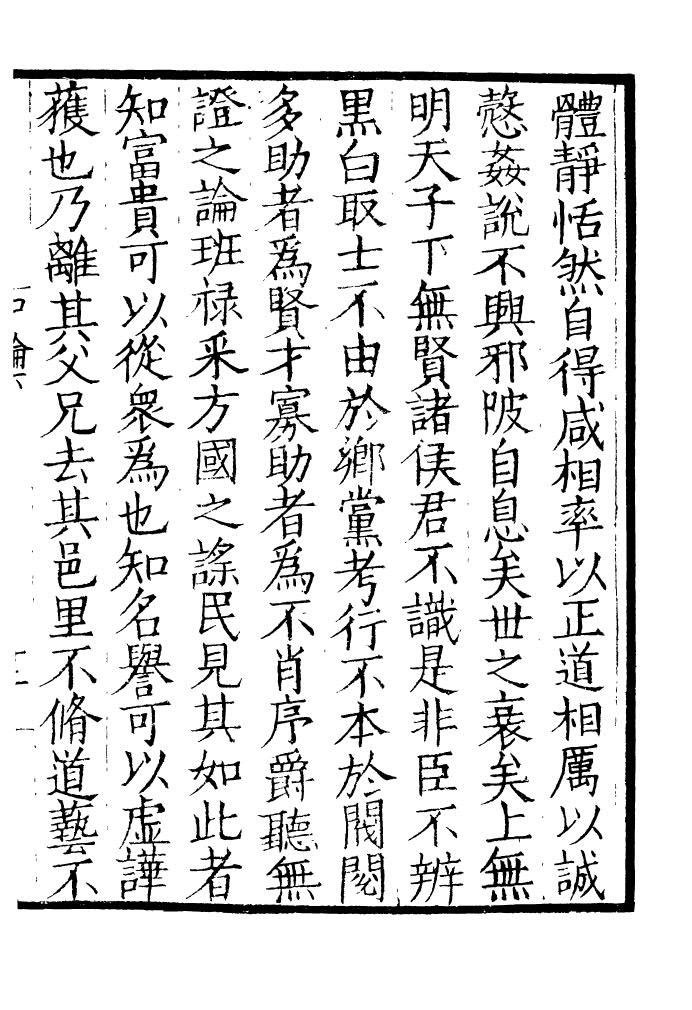 體靜恬然自得咸相率以正道相厲以誠
慤姦說不興邪陂自息矣世之衰矣上無
明天子下無賢諸侯君不識是非臣不辨
黑白取士不由於鄉黨考行不本於閥閱
多助者為賢才寡助者為不肖序爵聽無
證之論班祿采方國之謠民見其如此者
知富貴可以從衆為也知名譽可以虛譁
獲也乃離其父兄去其邑里不脩道藝不